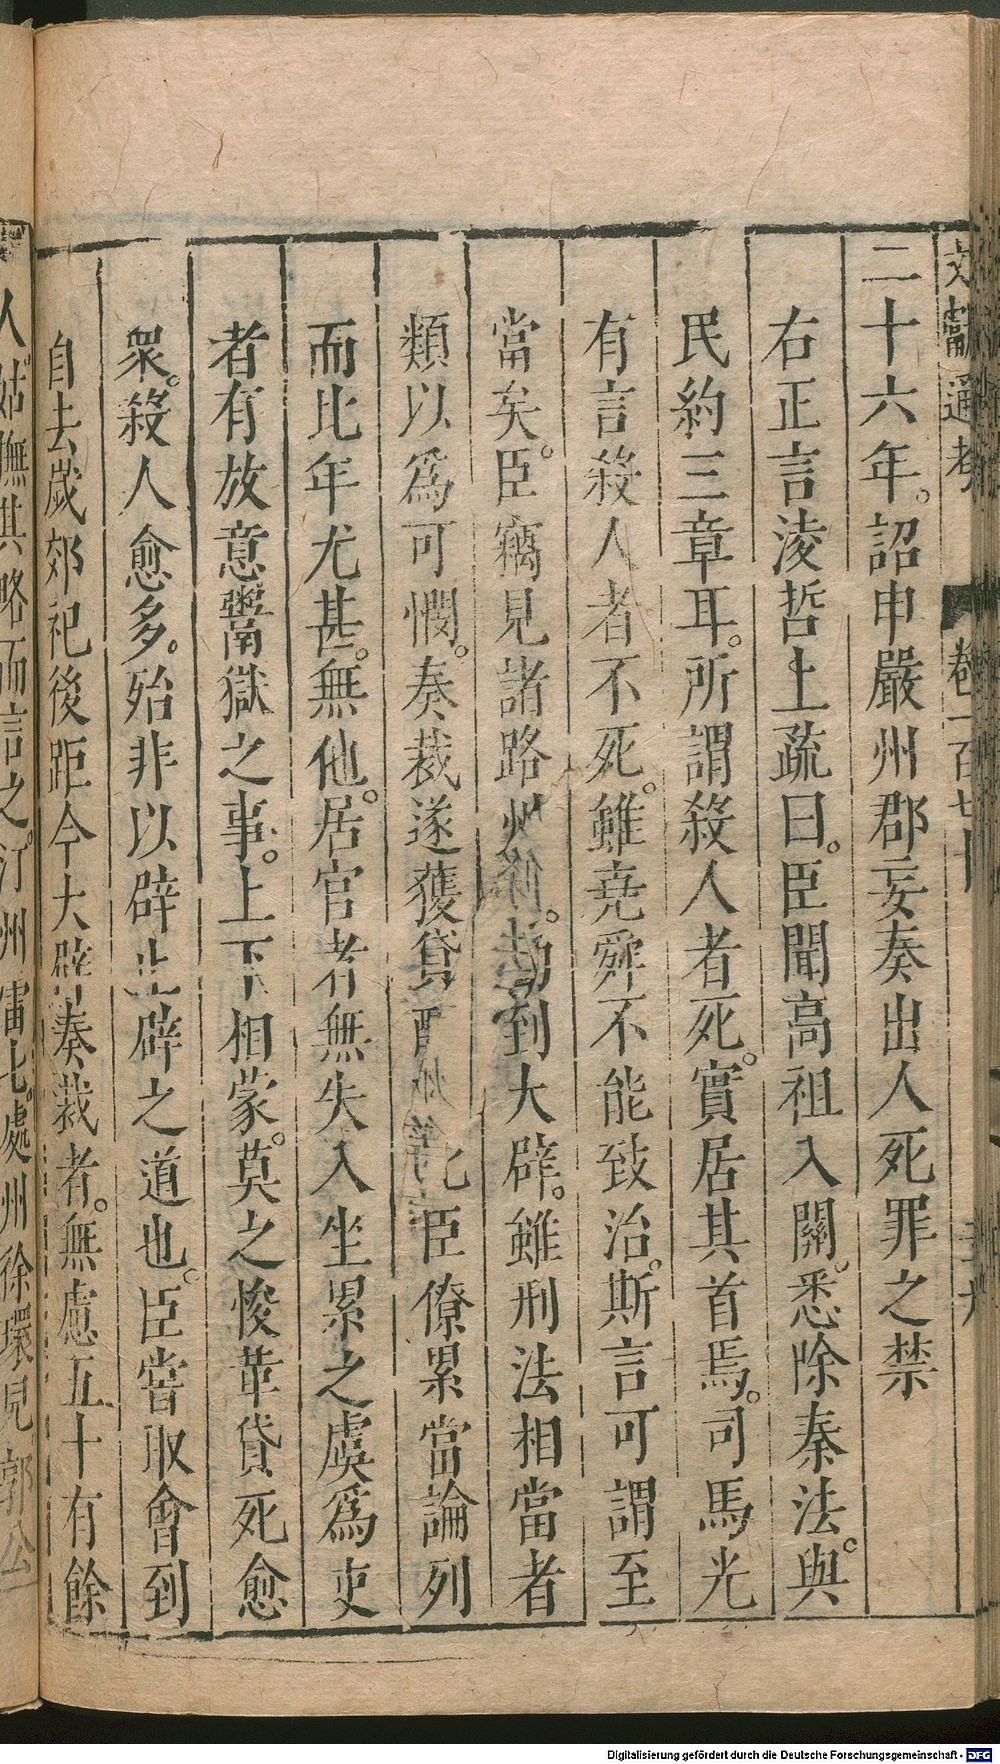 文獻通考 卷一百七十
二十六年。詔申嚴州郡妄奏出人死罪之禁
右正言淩哲上疏曰。臣聞高祖入關。悉除秦法。與
民約三章耳。所謂殺人者死。實居其首焉。司馬光
有言殺人者不死。雖堯舜不能致治。斯言可謂至
當矣。臣竊見諸路州 。 到大辟。雖刑法相當者
類以爲可憫。奏裁遂獲貸配 臣僚累當論列
而比年尤甚。無他。居官者無失入坐累之虞爲吏
者有放意鬻獄之事。上下相蒙。莫之悛革貸死愈
衆。殺人愈多。殆非以辟止辟之道也。臣嘗取會到
自去歲郊祀後距今大辟奏裁者。無慮五十有餘
人姑撫其略而言之。汀州雷七。處州徐環兒郭公
Digitalisierung gefördert durch die Deutsche Forschungsgemeinschaft - DFG